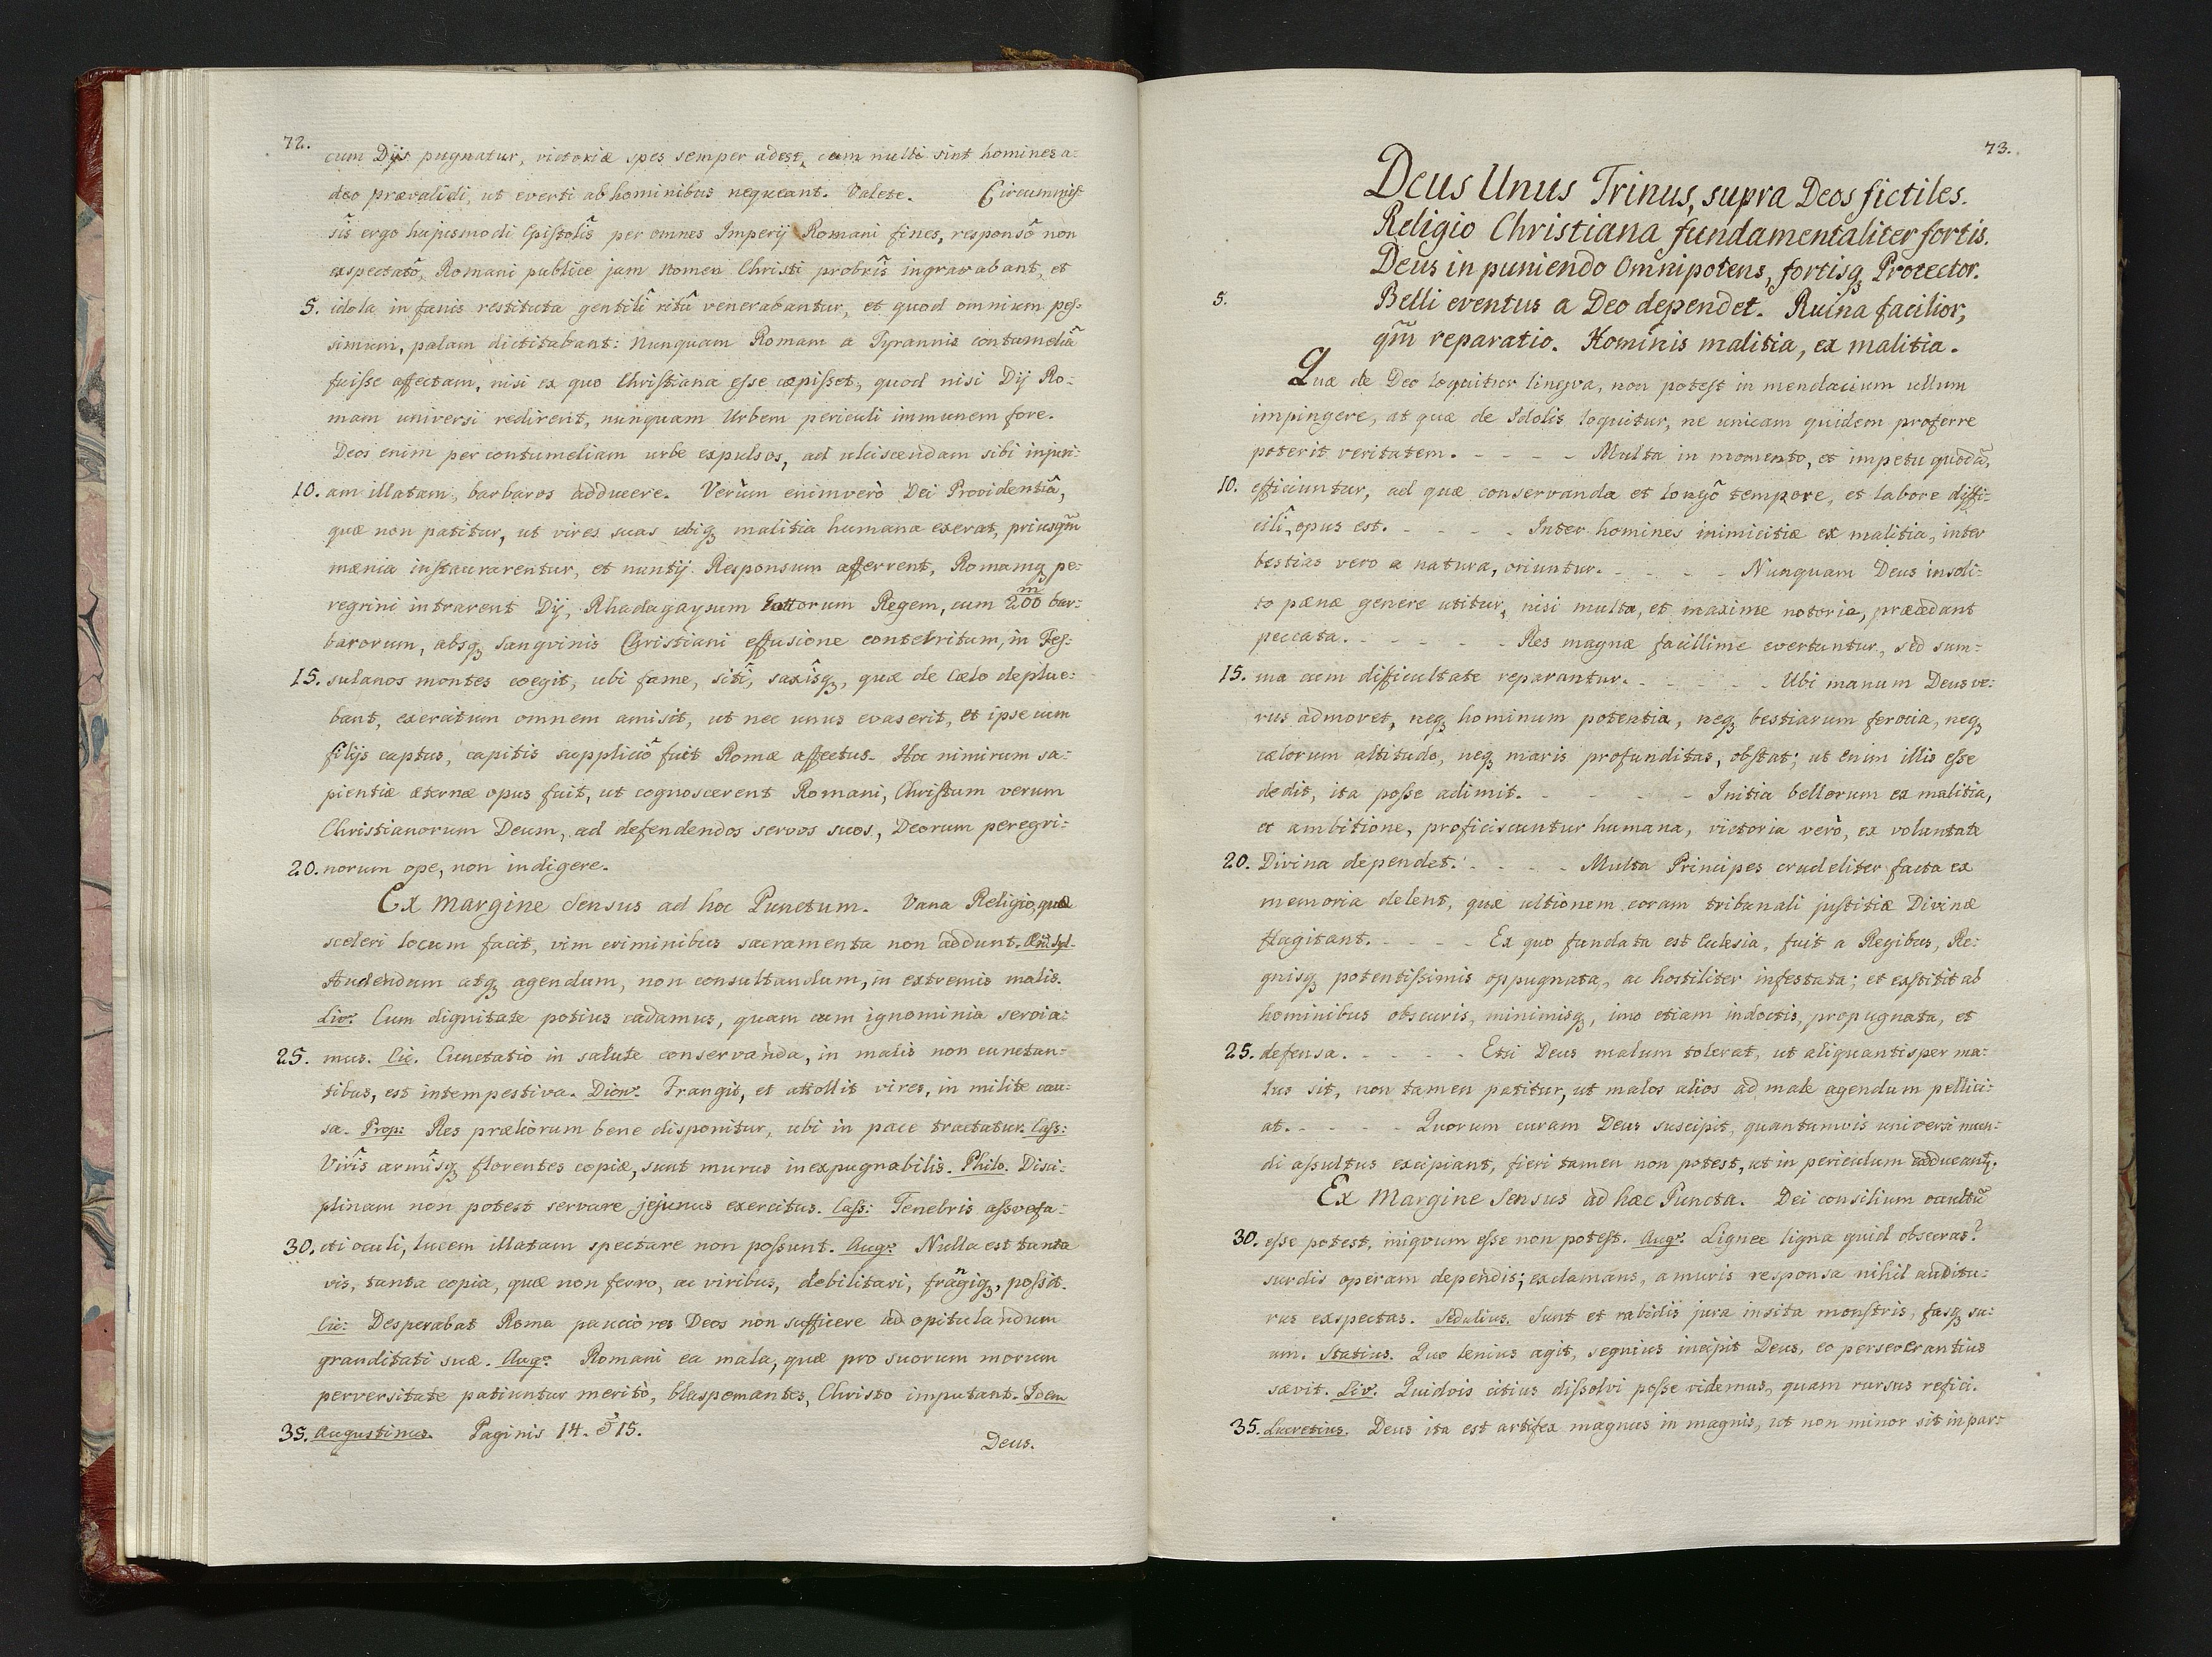 72.
cum Dijs pugnatur, victoriæ spes semper adest, cum nulli sint homines a=
deo prævalidi, ut everti ab hominibus nequeant. Valete. Circummis=
sîs ergo hujusmodi Epistolîs per omnes Imperij Romani fines, responsô non
exspectatô, Romani publice jam nomen Christi probrîs ingravabant, et
5. idola in fanis restituta gentilî ritû venerabantur, et quod omnium pes=
simum, palam dictitabant: Nunquam Romam a Tyrannis contumeliâ
fuisse affectam, nisi ex quo Christiana esse cæpisset, quod nisi Dij Ro=
mam universi redirent, nunquam Urbem periculi immunem fore.
Deos enim per contumeliam urbe expulsos, ad ulciscendam sibi injuri=
10. am illatam, barbaros adducere. Verùm enimverò Dei Providentiâ,
quæ non patitur, ut vires suas ubiq malitia humana exerat, priusqm̃
mænia instaurarentur, et nuntij Responsum afferrent, Romamq pe=
regrini intrarent Dij, Rhadagaysum Gottorum Regem, cum 200 m bar=
barorum, absq sangvinis Christiani effusione conterritum, in Fes=
15. sulanos montes coegit, ubi fame, sitî, saxîsq, quæ de Cælo deplue=
bant, exercitum omnem amisit, ut nec unus evaserit, et ipse cum
filijs captus, capitis suppliciô fuit Romæ affectus. Hoc nimirum sa=
pientiæ æternæ opus fuit, ut cognoscerent Romani, Christum verum
Christianorum Deum, ad defendendos servos suos, Deorum peregri=
20. norum ope, non indigere.
Ex Margine Sensus ad hoc Punctum. Vana Religio, quæ
sceleri locum facit, vim criminibus sacramenta non addunt.
Audendum atq agendum, non consultandum, in extremis malis.
Liv. Cum dignitate potius cadamus, quam cum ignominia servia=
25. mus. Cic. Cunctatio in salute conservanda, in malis non cunctan=
tibus, est intempestiva. Dion. Frangit, et attollit vires, in milite cau=
sa. Prop: Res præliorum bene disponitur, ubi in pace tractatur. Cass:
Virîs armîsq florentes copiæ, sunt murus inexpugnabilis. Philo. Disci=
plinam non potest servare jejunus exercitus. Cass: Tenebris assvefa=
30. cti oculi, lucem illatam spectare non possunt. Aug. Nulla est tanta
vis, tanta copia, quæ non ferro, ac viribus, debilitari, frangiq, possit.
Cic: Desperabat Roma pauciores Deos non sufficere ad opitulandum
granditati suæ. Aug. Romani ea mala, quæ pro suorum morum
perversitate patiuntur meritò, blaspemantes, Christo imputant. Idem
35. Augustinus. Paginis 14. & 15.
Deus.
73.
Deus Unus Trinus, supra Deos fictiles.
Religio Christiana fundamentaliter fortis.
Deus in puniendo Omnipotens, fortisq Protector.
5. Belli eventus a Deo dependet. Ruina facilior,
qm̃ reparatio. Hominis malitia, ex malitia.
Quæ de Deo loquitur lingva, non potest in mendacium ullum
impingere, at quæ de Idolis loquitur, ne unicam quidem proferre
poterit veritatem. - - - - Multa in momento, et impetu quodã,
10. efficiuntur, ad quæ conservanda et longô tempore, et labore diffi=
cilî, opus est. - - - - Inter homines inimicitiæ ex malitia, inter
bestias vero a natura, oriuntur. - - - - Nunquam Deus insoli=
to pænæ genere utitur, nisi multa, et maxime notoria, præcedant
peccata. - - - - - Res magnæ facillime evertuntur, sed sum=
15. ma cum difficultate reparantur. - - - - - Ubi manum Deus ve=
rus admovet, neq hominum potentia, neq bestiarum ferocia, neq
cælorum altitudo, neq maris profunditas, obstat; ut enim illis esse
dedit, ita posse adimit. - - - - Initia bellorum ex malitia,
et ambitione, proficiscuntur humana, victoria verò, ex voluntate
20. Divina dependet. - - - - Multa Principes crudeliter facta ex
memoria delent, quæ ultionem coram tribunali justitiæ Divinæ
flagitant. - - - - Ex quo fundata est Eclesia, fuit a Regibus, Re=
gnisq potentissimis oppugnata, ac hostiliter infestata; et exstitit ab
hominibus obscuris, minimisq, imo etiam indoctis, propugnata, et
25. defensa. - - - - Etsi Deus malum tolerat, ut aliquantisper ma=
lus sit, non tamen patitur, ut malos alios ad male agendum pellici=
at. - - - - Quorum curam Deus suscipit, quantumvis universi mun=
di assultus excipiant, fieri tamen non potest, ut in periculum adducantr.
Ex Margine Sensus ad hæc Puncta. Dei consilium occultũ
30. esse potest, iniqvum esse non potest. Aug. Lignee ligna quid obsecras?
surdis operam dependis; exclamans, a muris responsa nihil auditu=
rus exspectas. Sedulius. Sunt et rabidis jura insita monstris, fasq su=
um. Statius. Quo lenius agit, segnius incipit Deus, eo perseverantius
sævit. Liv. Quidvis citius dissolvi posse videmus, quam rursus refici.
35. Lucretius. Deus ita est artifex magnus in magnis, ut non minor sit in par=